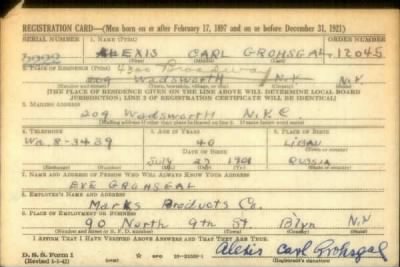 REGISTRATION CARD—(Men born on or after February 17, 1897 and on or before December 31, 1921)
SERIAL NUMBER 1. NAME (Print) ORDER NUMBER
ALEXIS CARL GROHSGAL 12045
(First) (Middle) (Last)
2. PLACE OF RESIDENCE (Print)
4300 Broadway
209 Wadsworth N.Y. N.Y.
(Number and street) (Town, township, village, or city) (County) (State)
[THE PLACE OF RESIDENCE GIVEN ON THE LINE ABOVE WILL DETERMINE LOCAL BOARD
JURISDICTION; LINE 2 OF REGISTRATION CERTIFICATE WILL BE IDENTICAL]
3. MAILING ADDRESS
209 Wadsworth N.Y.C
[Mailing address if other than place indicated on line 2. If same insert word same]
4. TELEPHONE 5. AGE IN YEARS 6. PLACE OF BIRTH
Wa. 8-3439 40 LIBAU
DATE OF BIRTH (Town or county)
JULY 27 1901 RUSSIA
(Mo.) (Day) (Yr.) (State or country)
7. NAME AND ADDRESS OF PERSON WHO WILL ALWAYS KNOW YOUR ADDRESS
EVE GROHSGAL
8. EMPLOYER'S NAME AND ADDRESS
Marks Products Co.
9. PLACE OF EMPLOYMENT OR BUSINESS
90 North 9th St. Blyn N.Y.
(Number and street or R. F. D. number) (Town) (County) (State)
I AFFIRM THAT I HAVE VERIFIED ABOVE ANSWERS AND THAT THEY ARE TRUE.
D. S. S. Form 1
(Revised 4-1-42) GPO Alexis Carl Grohsgal